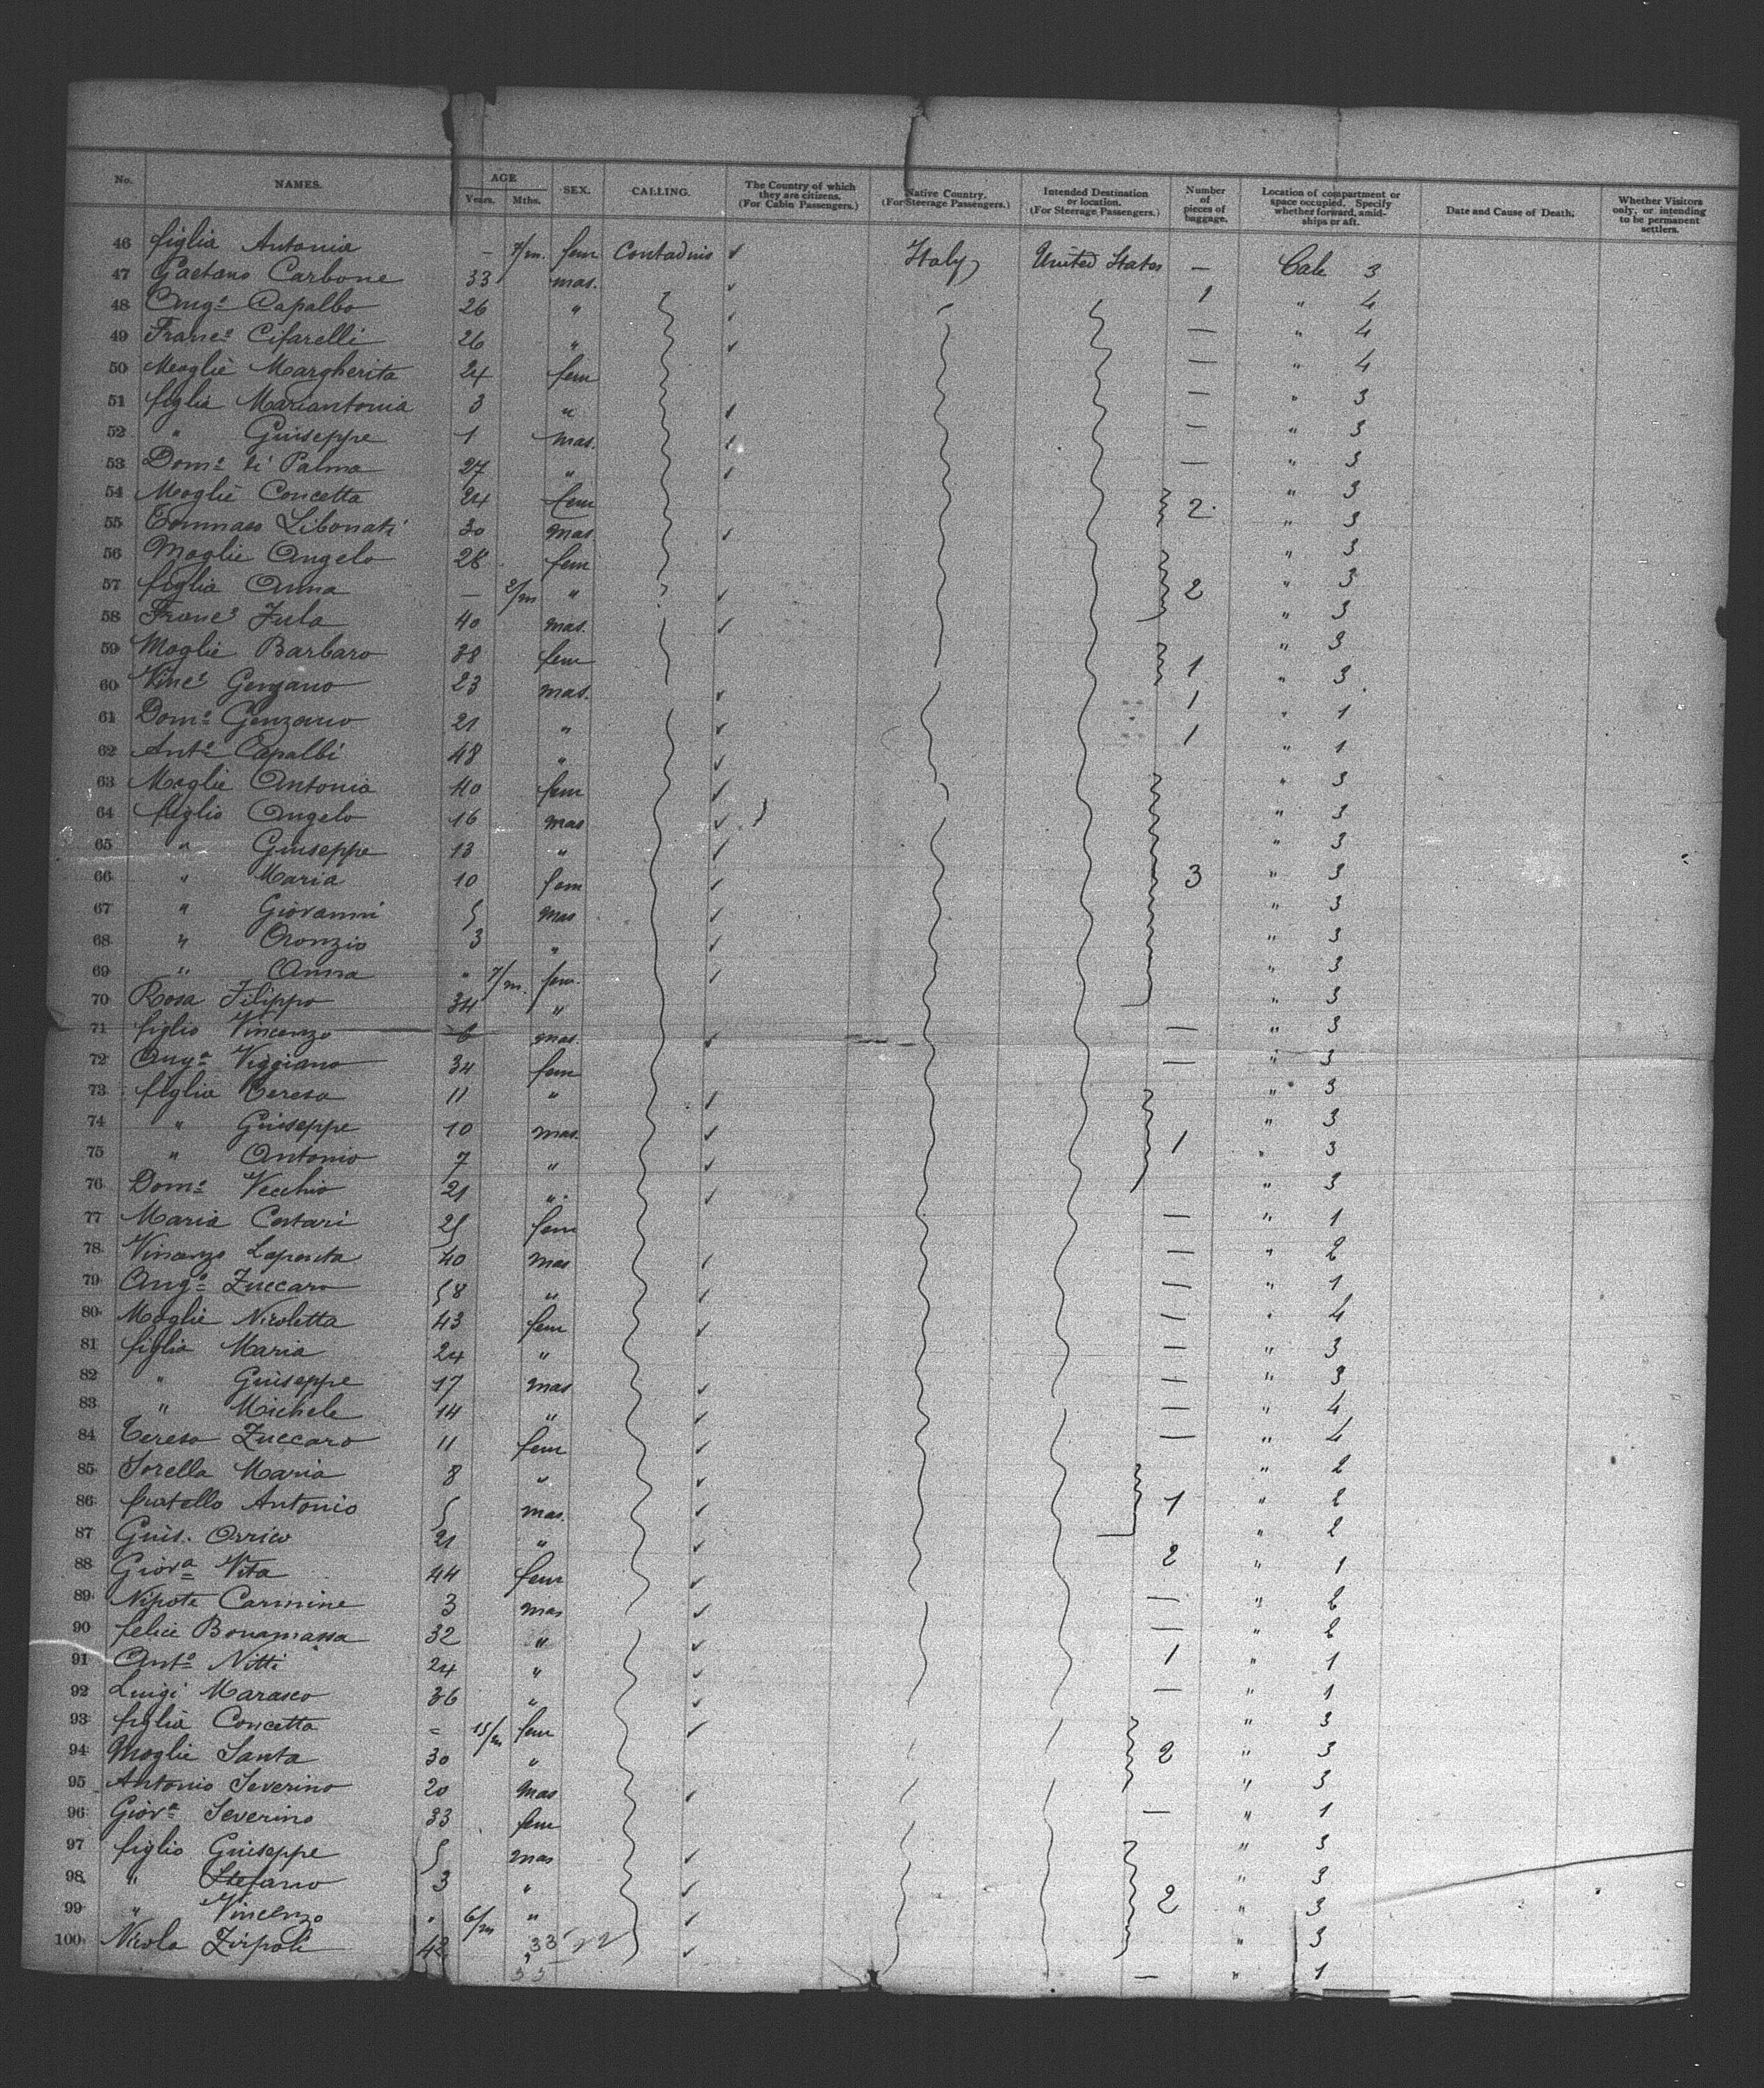 No. NAMES. AGE Years. Mths. SEX. CALLING. The Country of which they are citizens. (For Cabin Passengers.) Native Country. (For Steerage Passengers.) Intended Destination or location. (For Steerage Passengers.) Number of pieces of baggage. Location of compartment or space occupied. Specify whether forward, amidships or aft. Date and Cause of Death. Whether Visitors only, or intending to be permanent settlers.
46 figlia Antonia – 7/m. fem Contadini ✓ Italy United States — Cale 3
47 Gaetano Carbone 33 mas. ✓ 1 " 4
48 Angº Capalbo 26 " ✓ — " 4
49 Francº Cifarelli 26 " ✓ — " 4
50 Moglie Margherita 24 fem — " 3
51 figlia Mariantonia 3 " ✓ — " 3
52 " Giuseppe 1 mas. ✓ — " 3
53 Domº di Palma 27 " ✓ " 3
54 Moglie Concetta 24 fem 2 " 3
55 Tommaso Libonati 30 mas ✓ " 3
56 Moglie Angela 28 fem " 3
57 figlia Anna — 2/m " ✓ 2 " 3
58 Francº Zula 40 mas. ✓ " 3
59 Moglie Barbara 38 fem 1 " 3
60 Vincº Genzano 23 mas. ✓ 1 " 1
61 Domº Genzano 21 " ✓ 1 " 1
62 Antº Capalbi 48 " ✓ " 3
63 Moglie Antonia 40 fem ✓ " 3
64 figlio Angelo 16 mas ✓ " 3
65 " Giuseppe 13 " ✓ " 3
66 " Maria 10 fem ✓ 3 " 3
67 " Giovanni 5 mas ✓ " 3
68 " Oronzio 3 " ✓ " 3
69 " Anna " 7/m. fem. ✓ " 3
70 Rosa Filippo 34 " " 3
71 figlio Vincenzo 6 mas. ✓ — " 3
72 Angª Viggiano 34 fem — " 3
73 figlia Teresa 11 " ✓ " 3
74 " Giuseppe 10 mas. ✓ 1 " 3
75 " Antonio 7 " ✓ " 3
76 Domº Vecchio 21 " ✓ — " 1
77 Maria Costari 25 fem — " 2
78 Vincenzo Lapenta 40 mas ✓ — " 1
79 Angº Zuccaro 58 " ✓ — " 4
80 Moglie Nicoletta 43 fem ✓ — " 3
81 figlia Maria 24 " — " 3
82 " Giuseppe 17 mas ✓ — " 4
83 " Michele 14 " ✓ — " 4
84 Teresa Zuccaro 11 fem ✓ " 2
85 Sorella Maria 8 " ✓ 1 " 2
86 fratello Antonio 5 mas. ✓ " 2
87 Guis. Orrico 21 " ✓ 2 " 1
88 Giovª Vita 44 fem ✓ — " 2
89 Nipote Carmine 3 mas ✓ — " 2
90 felice Bonamassa 32 " ✓ 1 " 1
91 Antº Nitti 24 " ✓ — " 1
92 Luigi Marasco 36 " ✓ " 3
93 figlia Concetta = 15/m fem ✓ 2 " 3
94 Moglie Santa 30 " " 3
95 Antonio Severino 20 mas ✓ — " 1
96 Giovª Severino 33 fem " 3
97 figlio Giuseppe 5 mas ✓ " 3
98 " Stefano 3 " ✓ 2 " 3
99 " Vincenzo " 6/m " ✓ " 3
100 Nicola Zirpoli 42 " 33 ✓ — " 1